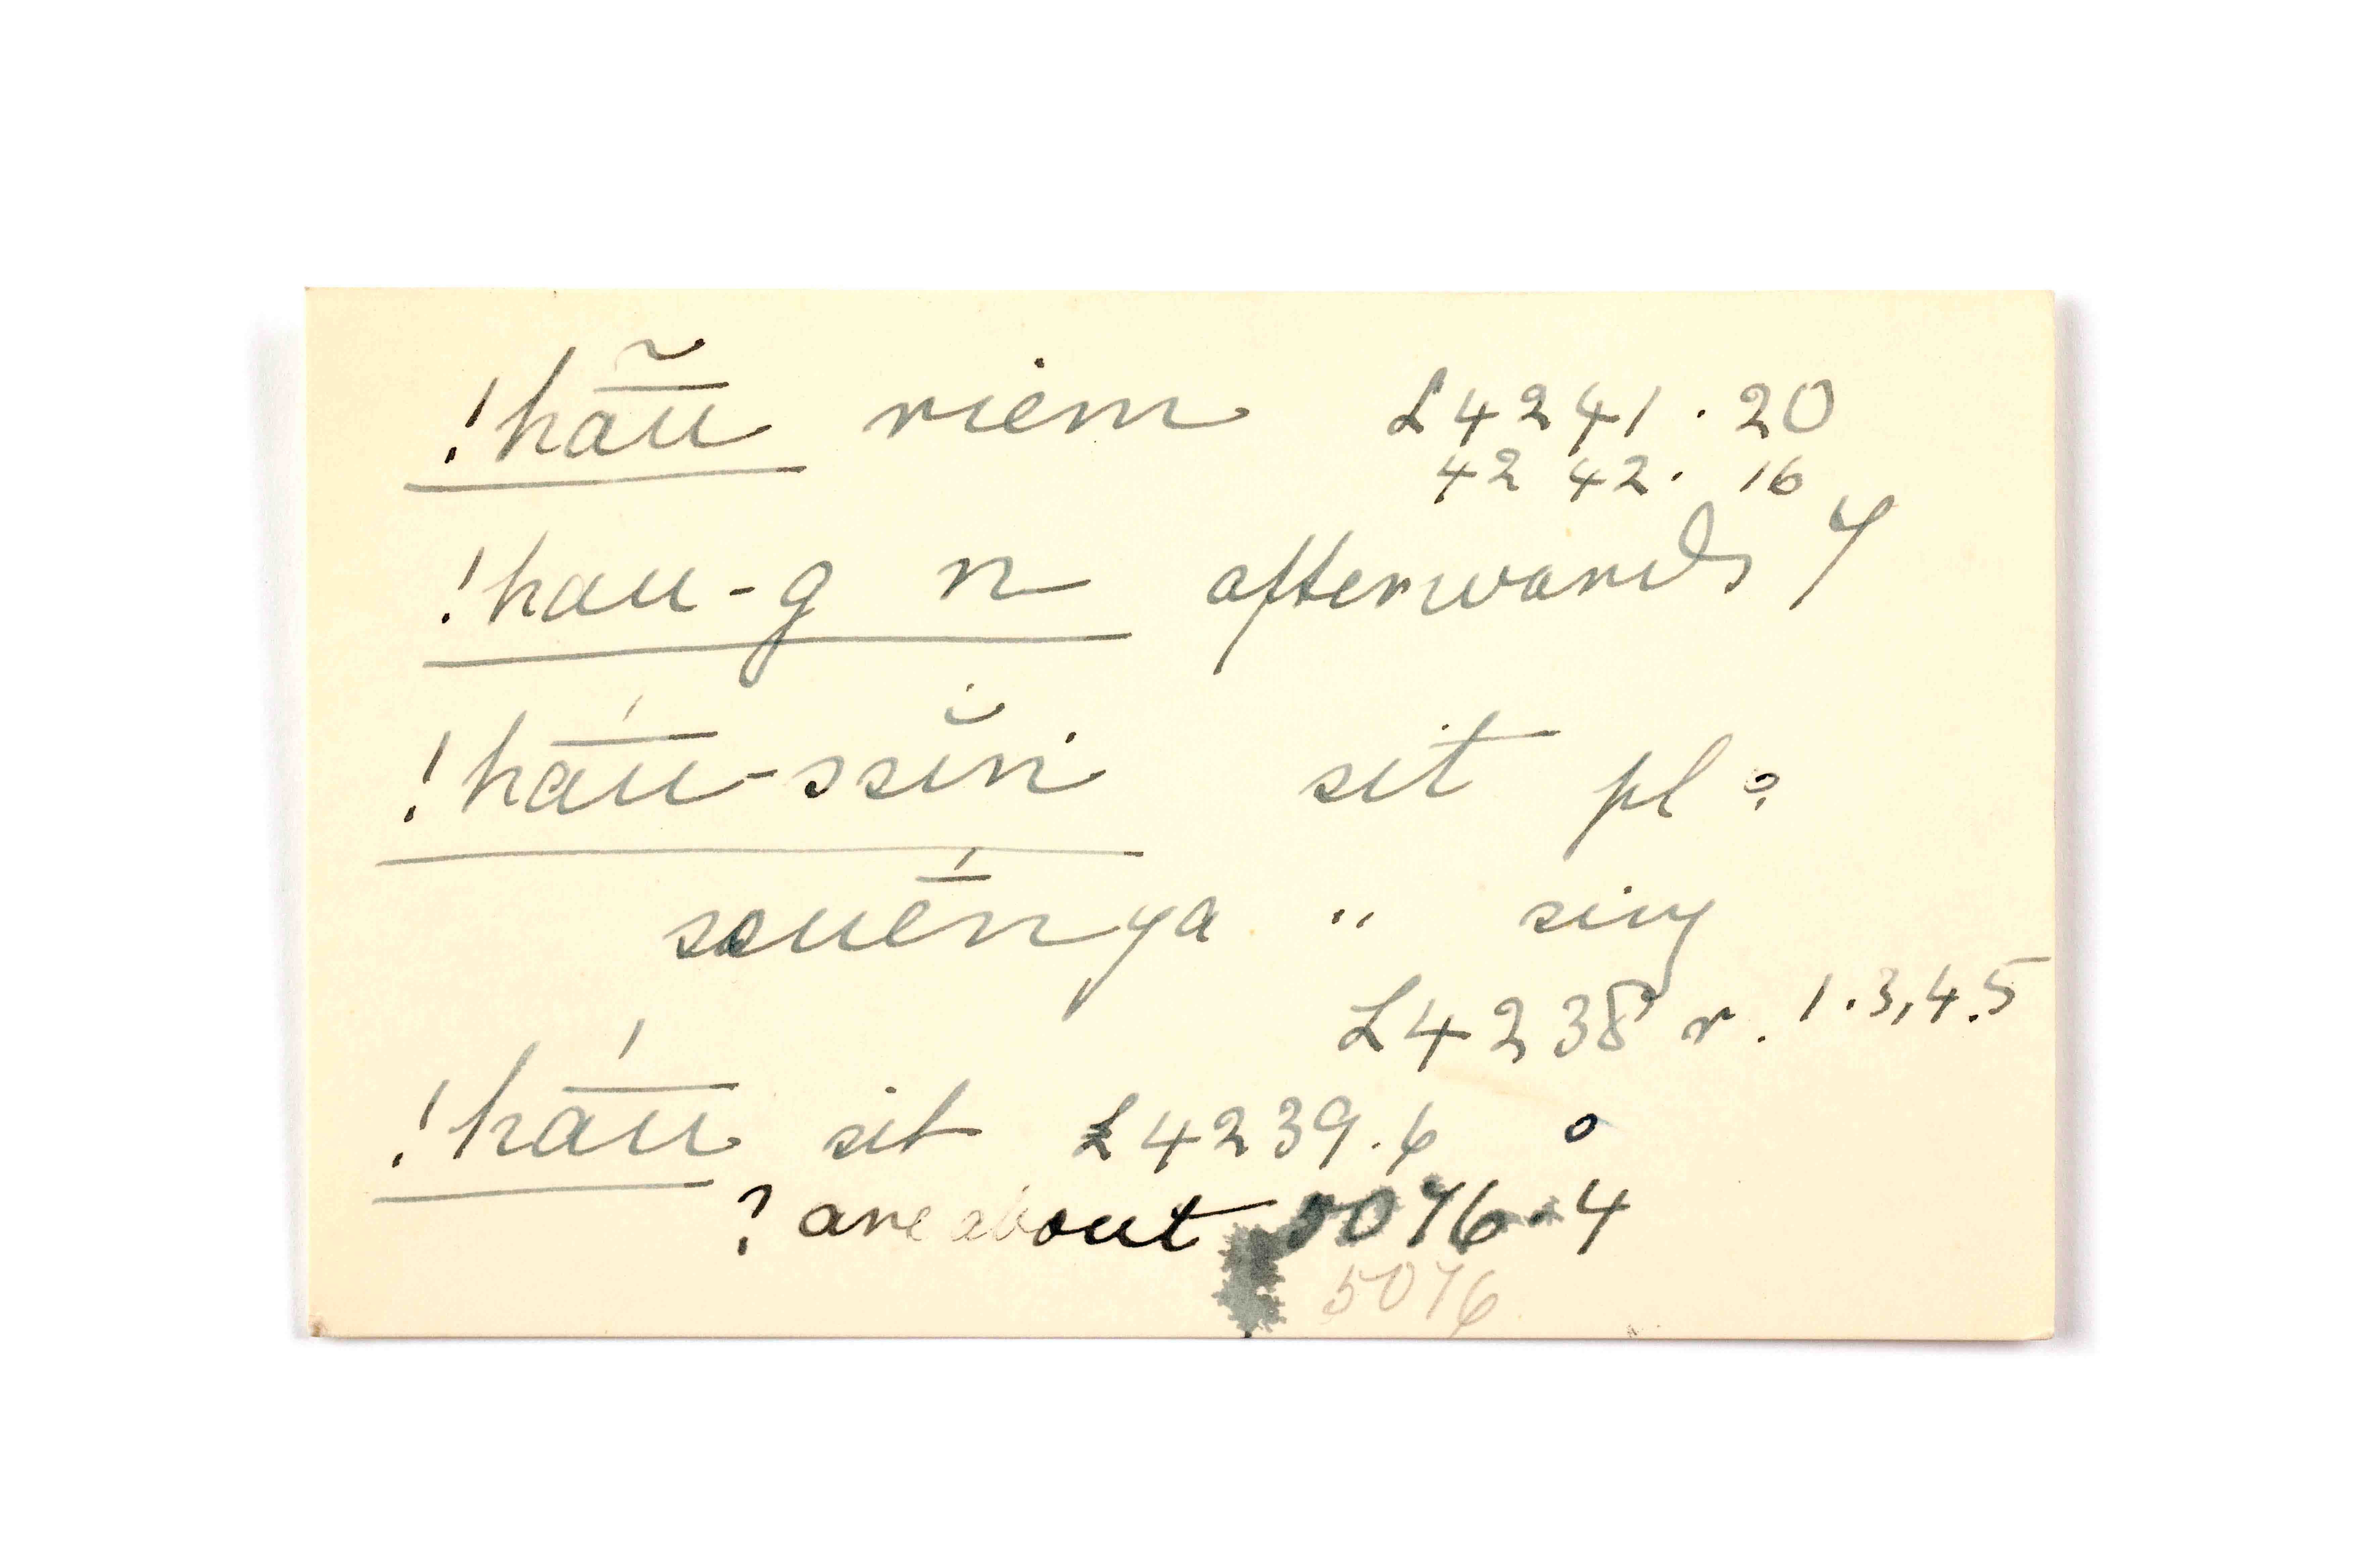 !hãū riem L4241.20
4242. 16
!hau-g n afterwards y
!hā́u-ssĭn sit pl ?
ssuḗn ya " sing
L4238 r. 1.3,4.5
!hā́u sit L4239.6 o
? are about 5076.4
5076